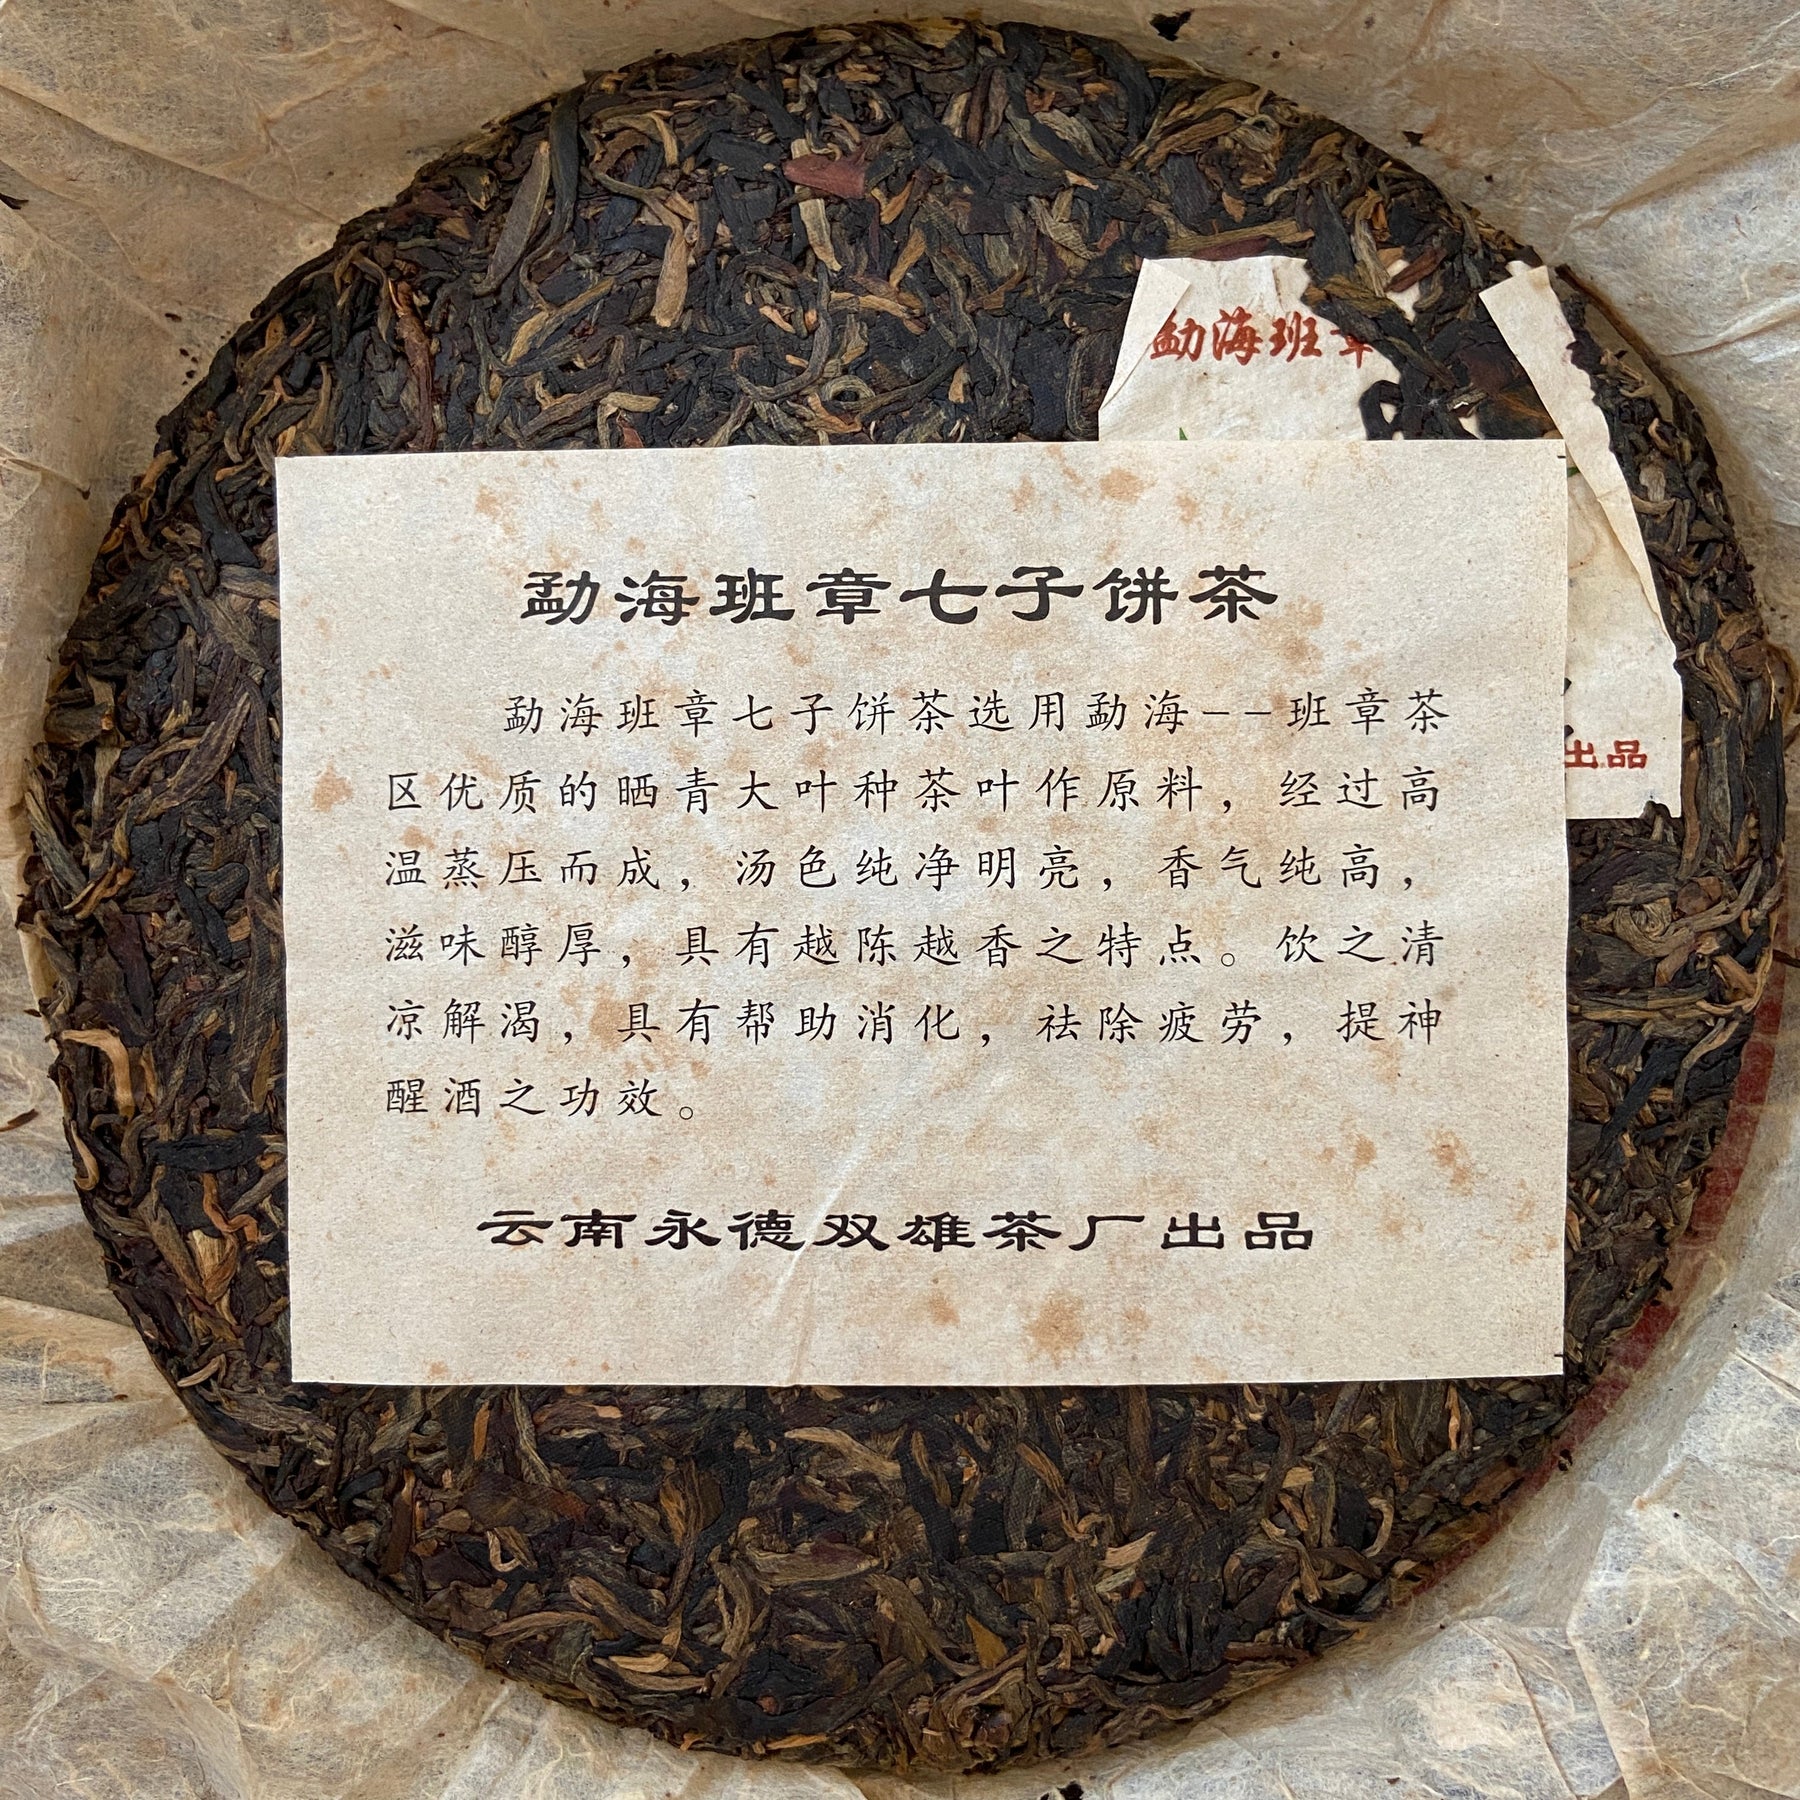 勐海班章
出品
勐海班章七子饼茶
勐海班章七子饼茶选用勐海--班章茶
区优质的晒青大叶种茶叶作原料，经过高
温蒸压而成，汤色纯净明亮，香气纯高，
滋味醇厚，具有越陈越香之特点。饮之清
凉解渴，具有帮助消化，祛除疲劳，提神
醒酒之功效。
云南永德双雄茶厂出品